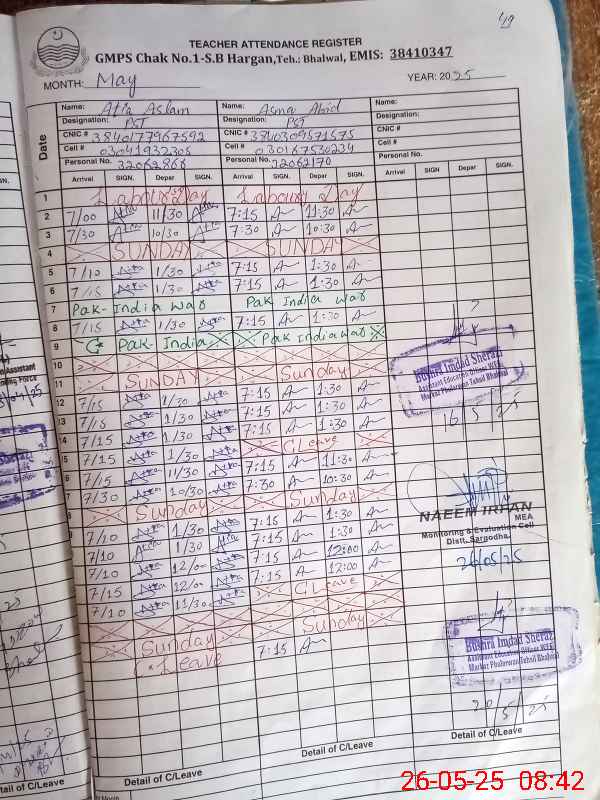 49
TEACHER ATTENDANCE REGISTER
GMPS Chak No.1-S.B Hargan, Teh.: Bhalwal, EMIS: 38410347
MONTH: May YEAR: 2025
Name: Atia Aslam Name: Asma Abid Name:
Designation: PST Designation: PST Designation:
CNIC # 3840177967592 CNIC # 3840309571575 CNIC #
Cell # 03041932305 Cell # 030167530234 Cell #
Personal No. 32062866 Personal No. 32062170 Personal No.
Date Arrival SIGN. Depar SIGN. Arrival SIGN. Depar SIGN. Arrival SIGN Depar SIGN
1 Labour Day Labour Day
2 7/00 11/30 7:15 11:30
3 7/30 10/30 7:30 10:30
4 SUNDAY SUNDAY
5 7/10 1/30 7:15 1:30
6 7/15 1/30 7:15 1:30
7 Pak-India war Pak India war
8 7/15 1/30 7:15 1:30
9 Pak-India Pak India war
10
11 SUNDAY Sunday
12 7/15 1/30 7:15 1:30
13 7/15 1/30 7:15 1:30
14 7/15 1/30 C Leave
7/15 11/30 7:15 11:30
7/30 10/30 7:30 10:30
Sunday Sunday
7/10 1/30 7:15 1:30
7/10 1/30 7:15 1:30
7/10 12/00 7:15 12:00
7/15 12/00 7:15 12:00
7/10 11/30 C Leave
Sunday Sunday
C Leave 7:15
Bushra Imdad Sherazi
Assistant Education Officer WEE
Markaz Phularwan Tehsil Bhalwal
16/5/25
NAEEM IRFAN
MEA
Monitoring & Evaluation Cell
Distt. Sargodha.
26/05/25
Bushra Imdad Sherazi
Assistant Education Officer WEE
Markaz Phularwan Tehsil Bhalwal
Detail of C/Leave Detail of C/Leave Detail of C/Leave
26-05-25 08:42